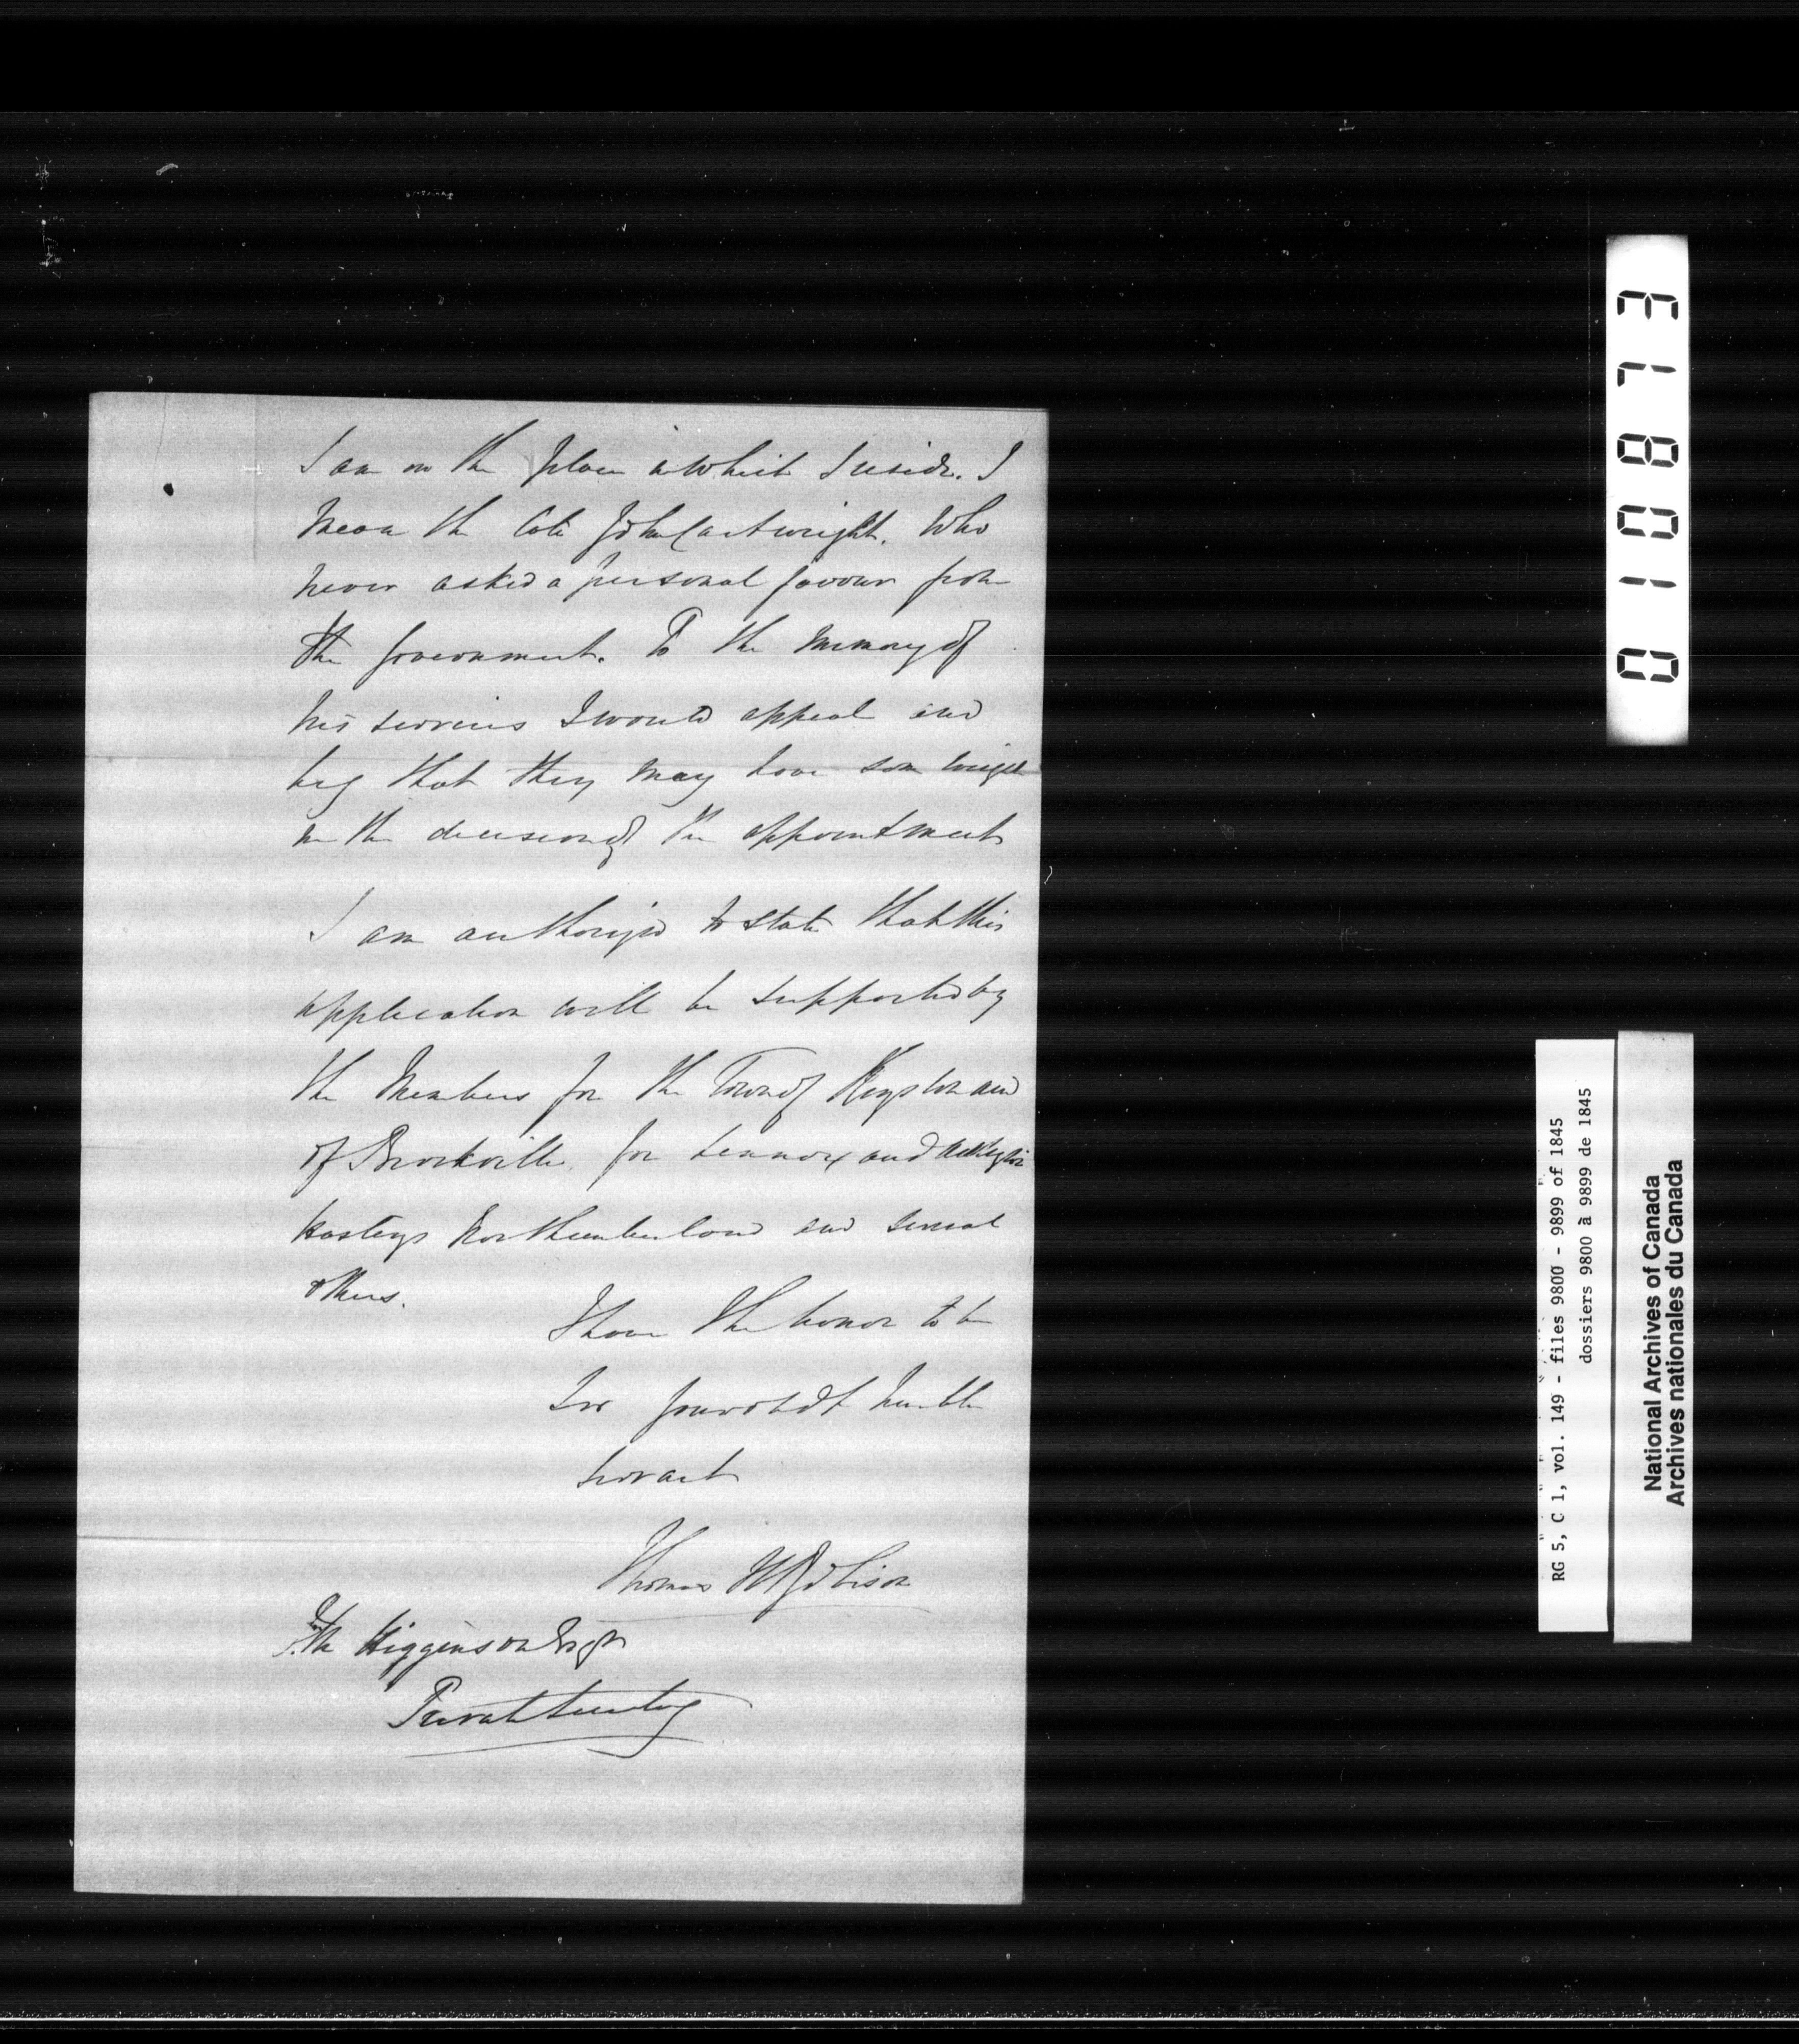 I am in the place in which I reside. I
mean the late John Cartwright. Who
never asked a personal favour from
the Government. To the memory of
his services I would appeal and
beg that they may have some weight
in the decision of the appointment
I am authorized to state that this
application will be supported by
the Members for the Town of Kingston and
of Brockville, for Lennox and Addington
Hastings Northumberland and several
others.
I have the honor to be
Sir your obdt humble
servant
Thomas W Robison
Higginson Esqr
Private Secretary
010873
RG 5, C 1, vol. 149 - files 9800 - 9899 of 1845
dossiers 9800 à 9899 de 1845
National Archives of Canada
Archives nationales du Canada